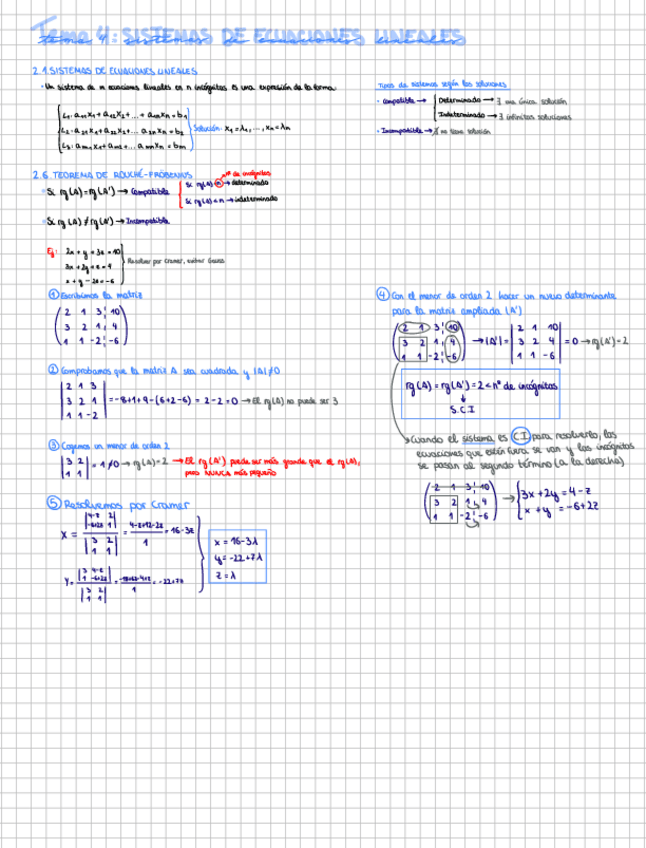 Tema 4: SISTEMAS DE ECUACIONES LINEALES
2.1. SISTEMAS DE ECUACIONES LINEALES
· Un sistema de m ecuaciones lineales en n incógnitas es una expresión de la forma:
Solución: x₁=λ₁, ..., xₙ=λₙ
Tipos de sistemas según las soluciones
· Compatible → Determinado → ∃ una única solución
Indeterminado → ∃ infinitas soluciones
· Incompatible → ∄ no tiene solución
2.6. TEOREMA DE ROUCHÉ-FRÖBENIUS
nº de incógnitas
· Si rg(A)=rg(A') → Compatible
Si rg(A)=n → determinado
Si rg(A)<n → indeterminado
· Si rg(A)≠rg(A') → Incompatible
Ej:
2x + y + 3z = 10
3x + 2y + z = 4
x + y - 2z = -6
Resolver por Cramer, evitar Gauss
① Escribimos la matriz
2 1 3 ¦ 10
3 2 1 ¦ 4
1 1 -2 ¦ -6
② Comprobamos que la matriz A sea cuadrada y |A|≠0
2 1 3
3 2 1
1 1 -2
= -8+1+9-(6+2-6) = 2-2=0 → El rg(A) no puede ser 3
③ Cogemos un menor de orden 2
3 2
1 1
= 1≠0 → rg(A)=2 → El rg(A') puede ser más grande que el rg(A),
pero NUNCA más pequeño
④ Con el menor de orden 2 hacer un nuevo determinante
para la matriz ampliada (A')
2 1 3 ¦ 10
3 2 1 ¦ 4
1 1 -2 ¦ -6
→ |A'| =
2 1 10
3 2 4
1 1 -6
= 0 → rg(A')=2
rg(A) = rg(A') = 2 < nº de incógnitas
↓
S.C.I
Cuando el sistema es CI para resolverlo, las
ecuaciones que están fuera se van y las incógnitas
se pasan al segundo término (a la derecha)
2 1 3 ¦ 10
3 2 1 ¦ 4
1 1 -2 ¦ -6
→ 3x + 2y = 4 - z
x + y = -6 + 2z
⑤ Resolvemos por Cramer
4-z 2
-6+2z 1
3 2
1 1
= 16-3z
3 4-z
1 -6+2z
3 2
1 1
= -22+7z
x = 16-3λ
y = -22+7λ
z = λ